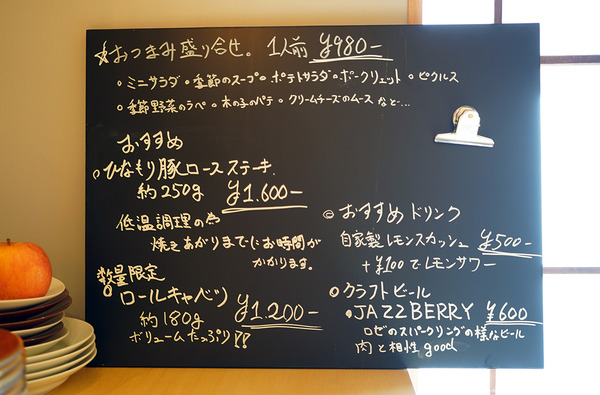 ☆おつまみ盛り合せ。 1人前 ¥980-
○ミニサラダ ○季節のスープ ○ポテトサラダ ○ポークリエット ○ピクルス
○季節野菜のラペ ○木の子のパテ ○クリームチーズのムース など…
おすすめ
○ひなもり豚ロースステーキ.
約250g ¥1.600-
低温調理の為
焼きあがりまでにお時間が
かかります。
数量限定
○ロールキャベツ
約180g ¥1.200-
ボリュームたっぷり!!
◎おすすめドリンク
自家製レモンスカッシュ ¥500-
+¥100でレモンサワー
○クラフトビール
・JAZZBERRY ¥600
ロゼのスパークリングの様なビール
肉と相性good